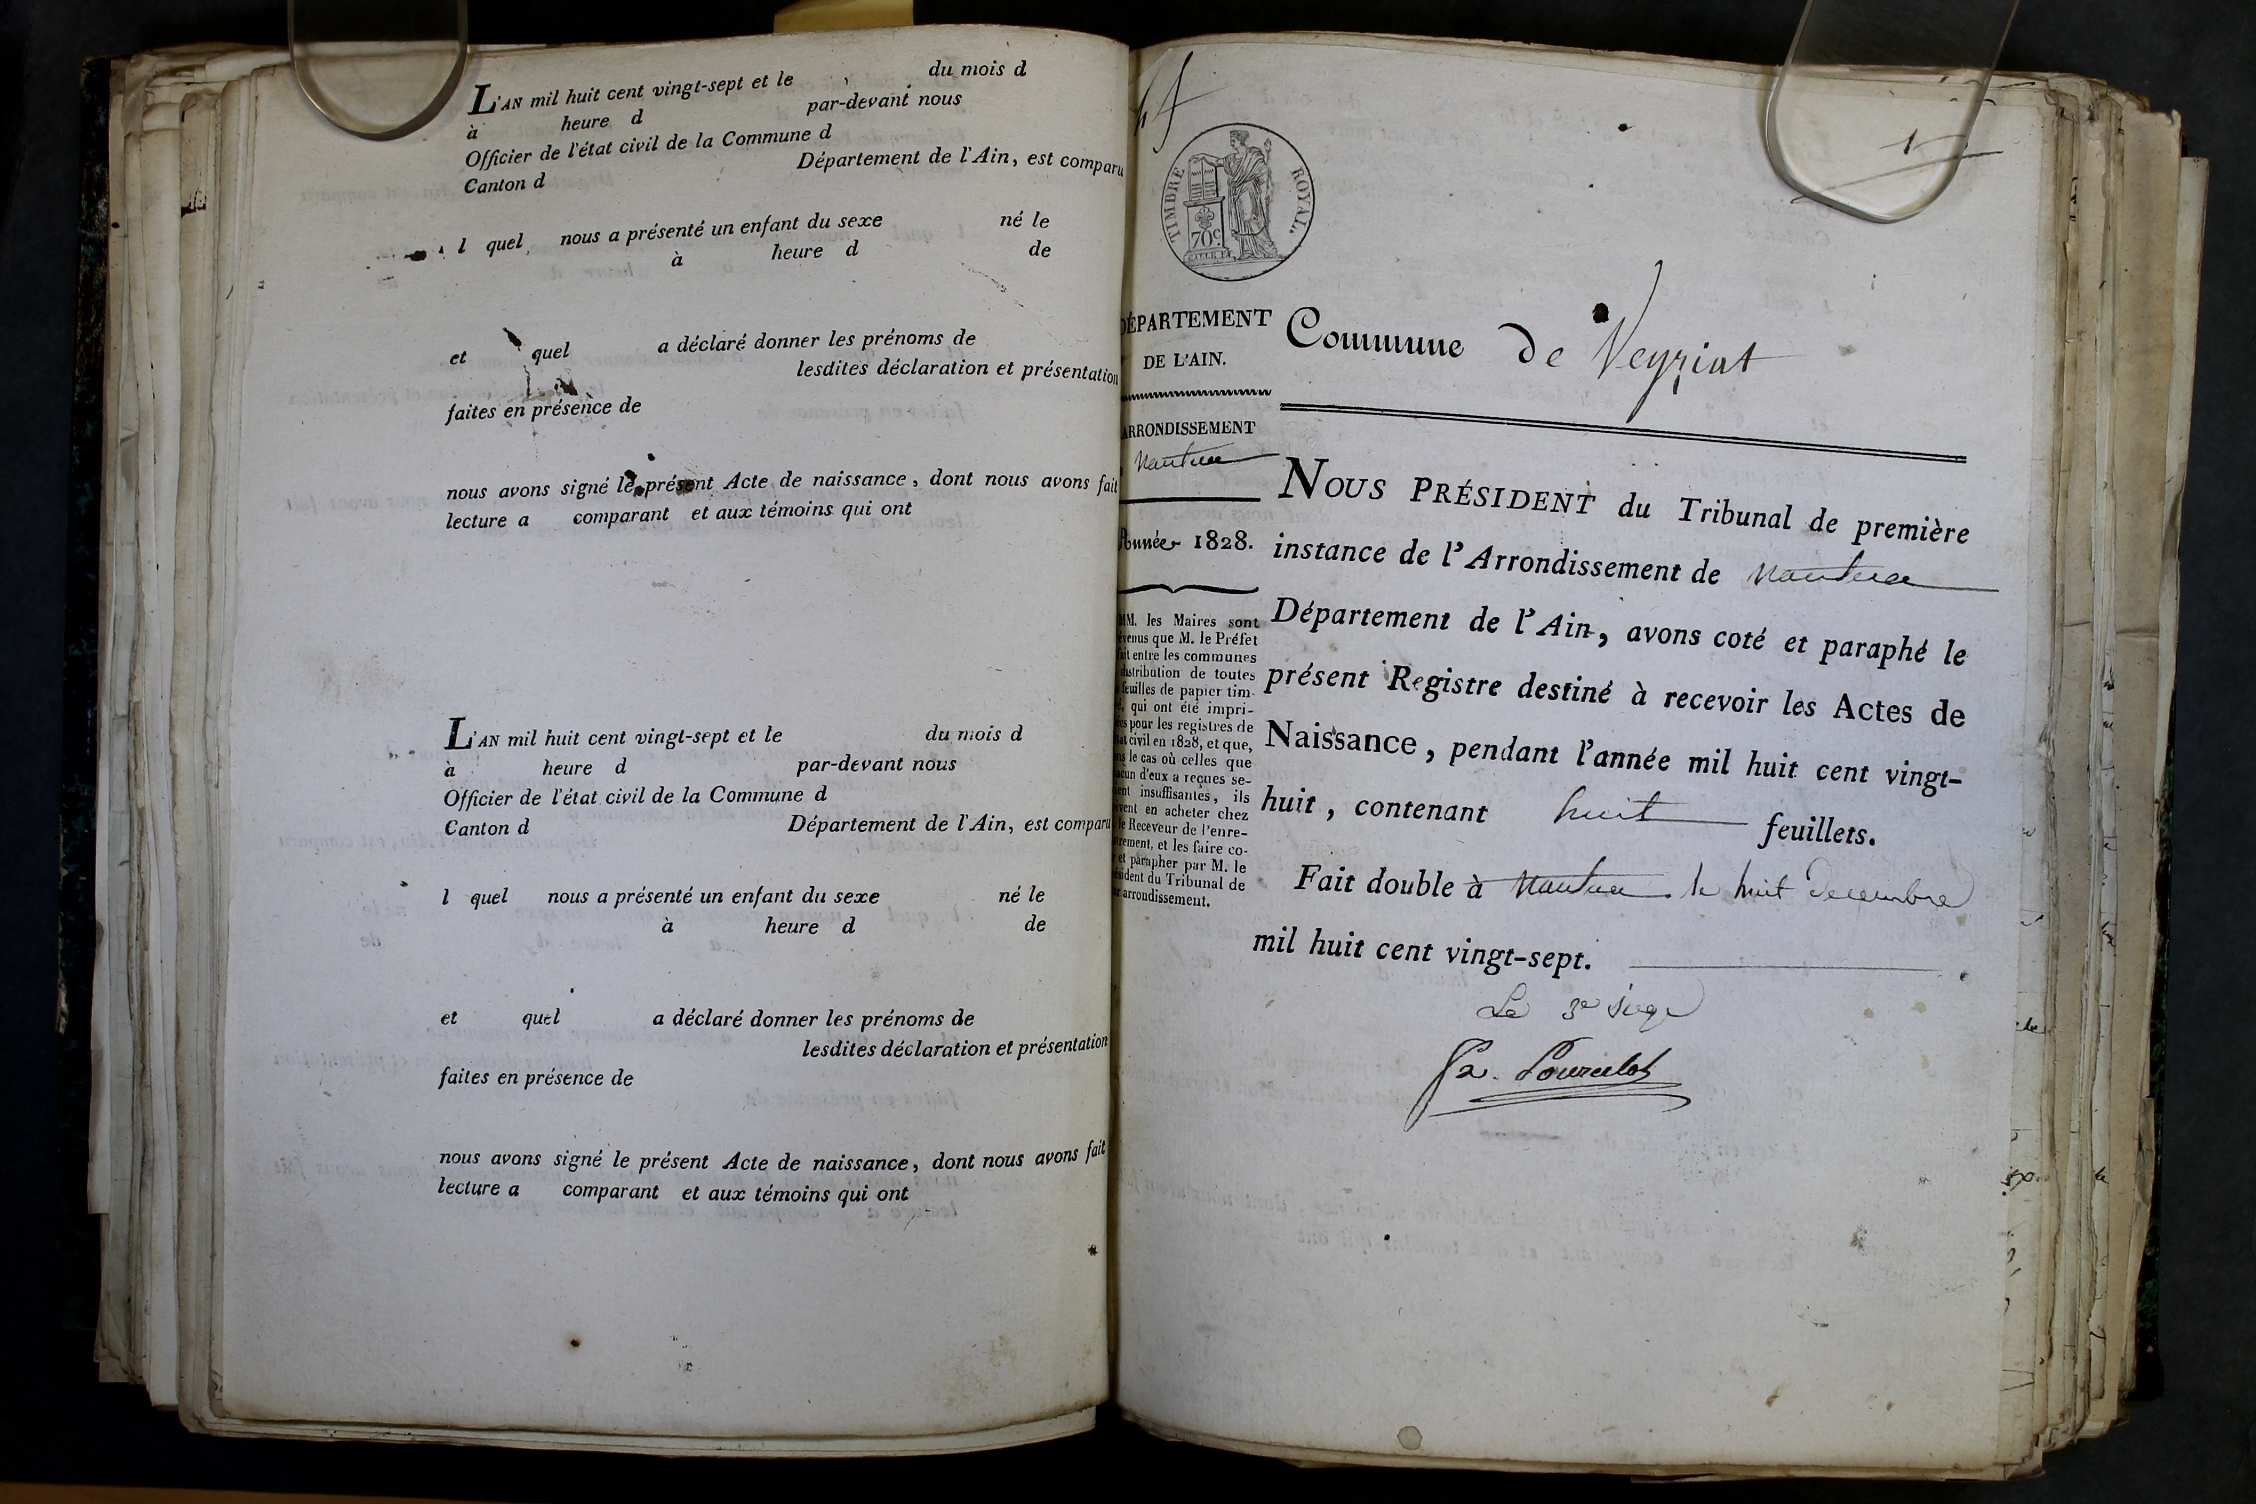 L'AN mil huit cent vingt-sept et le du mois d
à heure d par-devant nous
Officier de l'état civil de la Commune d
Canton d Département de l'Ain, est comparu
l quel nous a présenté un enfant du sexe né le
à heure d de
et quel a déclaré donner les prénoms de
lesdites déclaration et présentation
faites en présence de
nous avons signé le présent Acte de naissance, dont nous avons fait
lecture a comparant et aux témoins qui ont
L'AN mil huit cent vingt-sept et le du mois d
à heure d par-devant nous
Officier de l'état civil de la Commune d
Canton d Département de l'Ain, est comparu
l quel nous a présenté un enfant du sexe né le
à heure d de
et quel a déclaré donner les prénoms de
lesdites déclaration et présentation
faites en présence de
nous avons signé le présent Acte de naissance, dont nous avons fait
lecture a comparant et aux témoins qui ont
1
TIMBRE ROYAL.
70c
DÉPARTEMENT
DE L'AIN.
ARRONDISSEMENT
Nantua
Année 1828.
MM. les Maires sont
que M. le Préfet
entre les communes
distribution de toutes
feuilles de papier tim-
qui ont été impri-
pour les registres de
civil en 1828, et que,
le cas où celles que
d'eux a reçues se-
insuffisantes, ils
en acheter chez
le Receveur de l'enre-
et les faire co-
et parapher par M. le
du Tribunal de
arrondissement.
Commune de Veyziat
NOUS PRÉSIDENT du Tribunal de première
instance de l'Arrondissement de Nantua
Département de l'Ain, avons coté et paraphé le
présent Registre destiné à recevoir les Actes de
Naissance, pendant l'année mil huit cent vingt-
huit, contenant huit feuillets.
Fait double à Nantua le huit decembre
mil huit cent vingt-sept.
Le 3e Juge